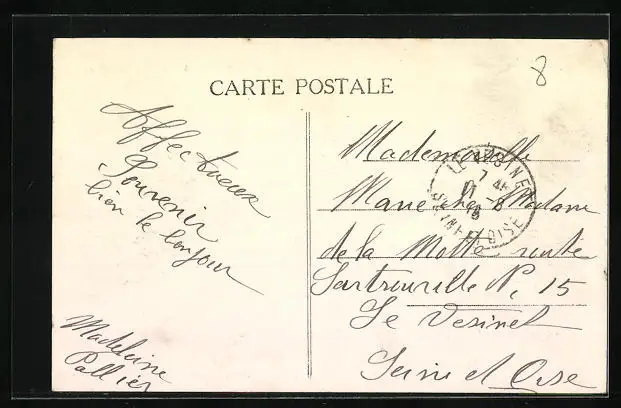 CARTE POSTALE
8
Affectueux
Souvenir
bien le bonjour
Madeleine
Pallier
Mademoiselle
Marie chez Madame
de la Motte route
Sartrouville N. 15
Le Vesinet
Seine et Oise
LE VÉSINET
7 45
11 8
SEINE-ET-OISE